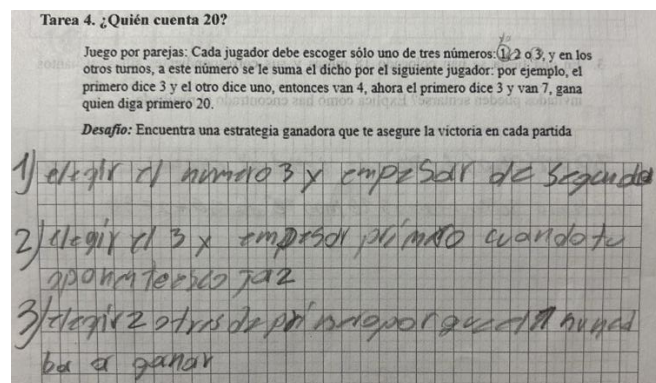 Tarea 4. ¿Quién cuenta 20?
yo
Juego por parejas: Cada jugador debe escoger sólo uno de tres números: 1, 2 o 3, y en los
otros turnos, a este número se le suma el dicho por el siguiente jugador: por ejemplo, el
primero dice 3 y el otro dice uno, entonces van 4, ahora el primero dice 3 y van 7, gana
quien diga primero 20.
Desafío: Encuentra una estrategia ganadora que te asegure la victoria en cada partida
1) elegir el numero 3 y empezar de segundo
2) elegir el 3 y empesar primero cuando tu
oponente escoja 2
3) elegir 2 o tres de primero porque el 1 nunca
ba a ganar